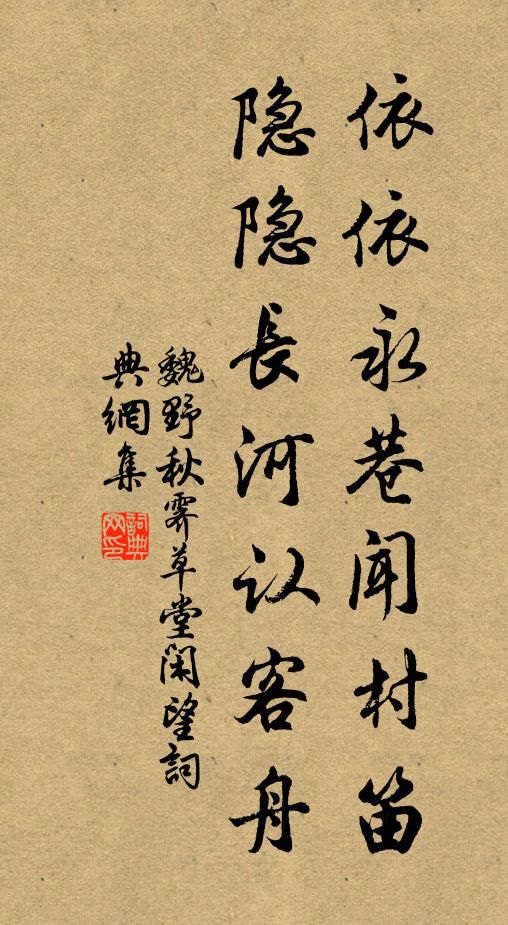 依依永巷闻村笛
隐隐長河认客舟
魏野秋霁草堂闲望詞
典網集
詞典
网印